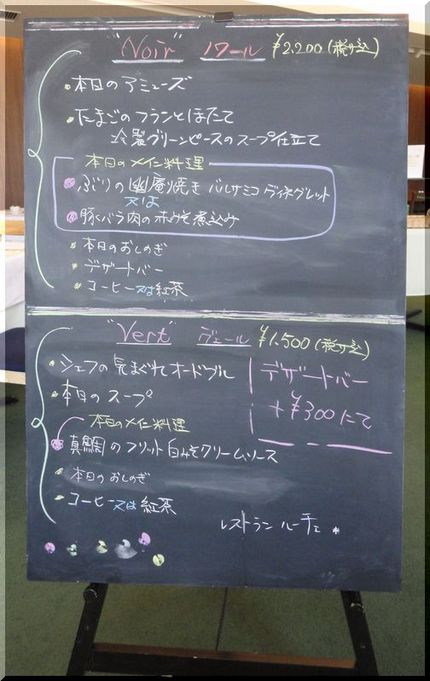 "Noir" ノワール ¥2,200(税込)
・本日のアミューズ
・たまごのフランとほたて
金星グリーンピースのスープ仕立て
本日のメイン料理
ぶりの幽庵焼き バルサミコヴィネグレット
又は
豚バラ肉の赤みそ煮込み
・本日のおしのぎ
・デザートバー
・コーヒー又は紅茶
"Vert" ヴェール ¥1,500(税込)
デザートバー
+¥300にて
・シェフの気まぐれオードブル
・本日のスープ
本日のメイン料理
真鯛のフリット 白みそクリームソース
・本日のおしのぎ
・コーヒー又は紅茶
レストラン